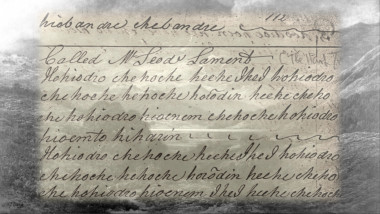 hiobandre chebandre
Called Mc.Leods Lament
Ihohiodro chehoche heche IheI hohiodro
chehoche hehoche horodin heche cheho
che hohiodro hioenem chehoche hohiodro
hioemto hiharin
Ihohiodro chehoche hecheIheI hohiodro
chehoche hehoche horodin heche cheho
che hohiodro hioenem IheI heche chehoch